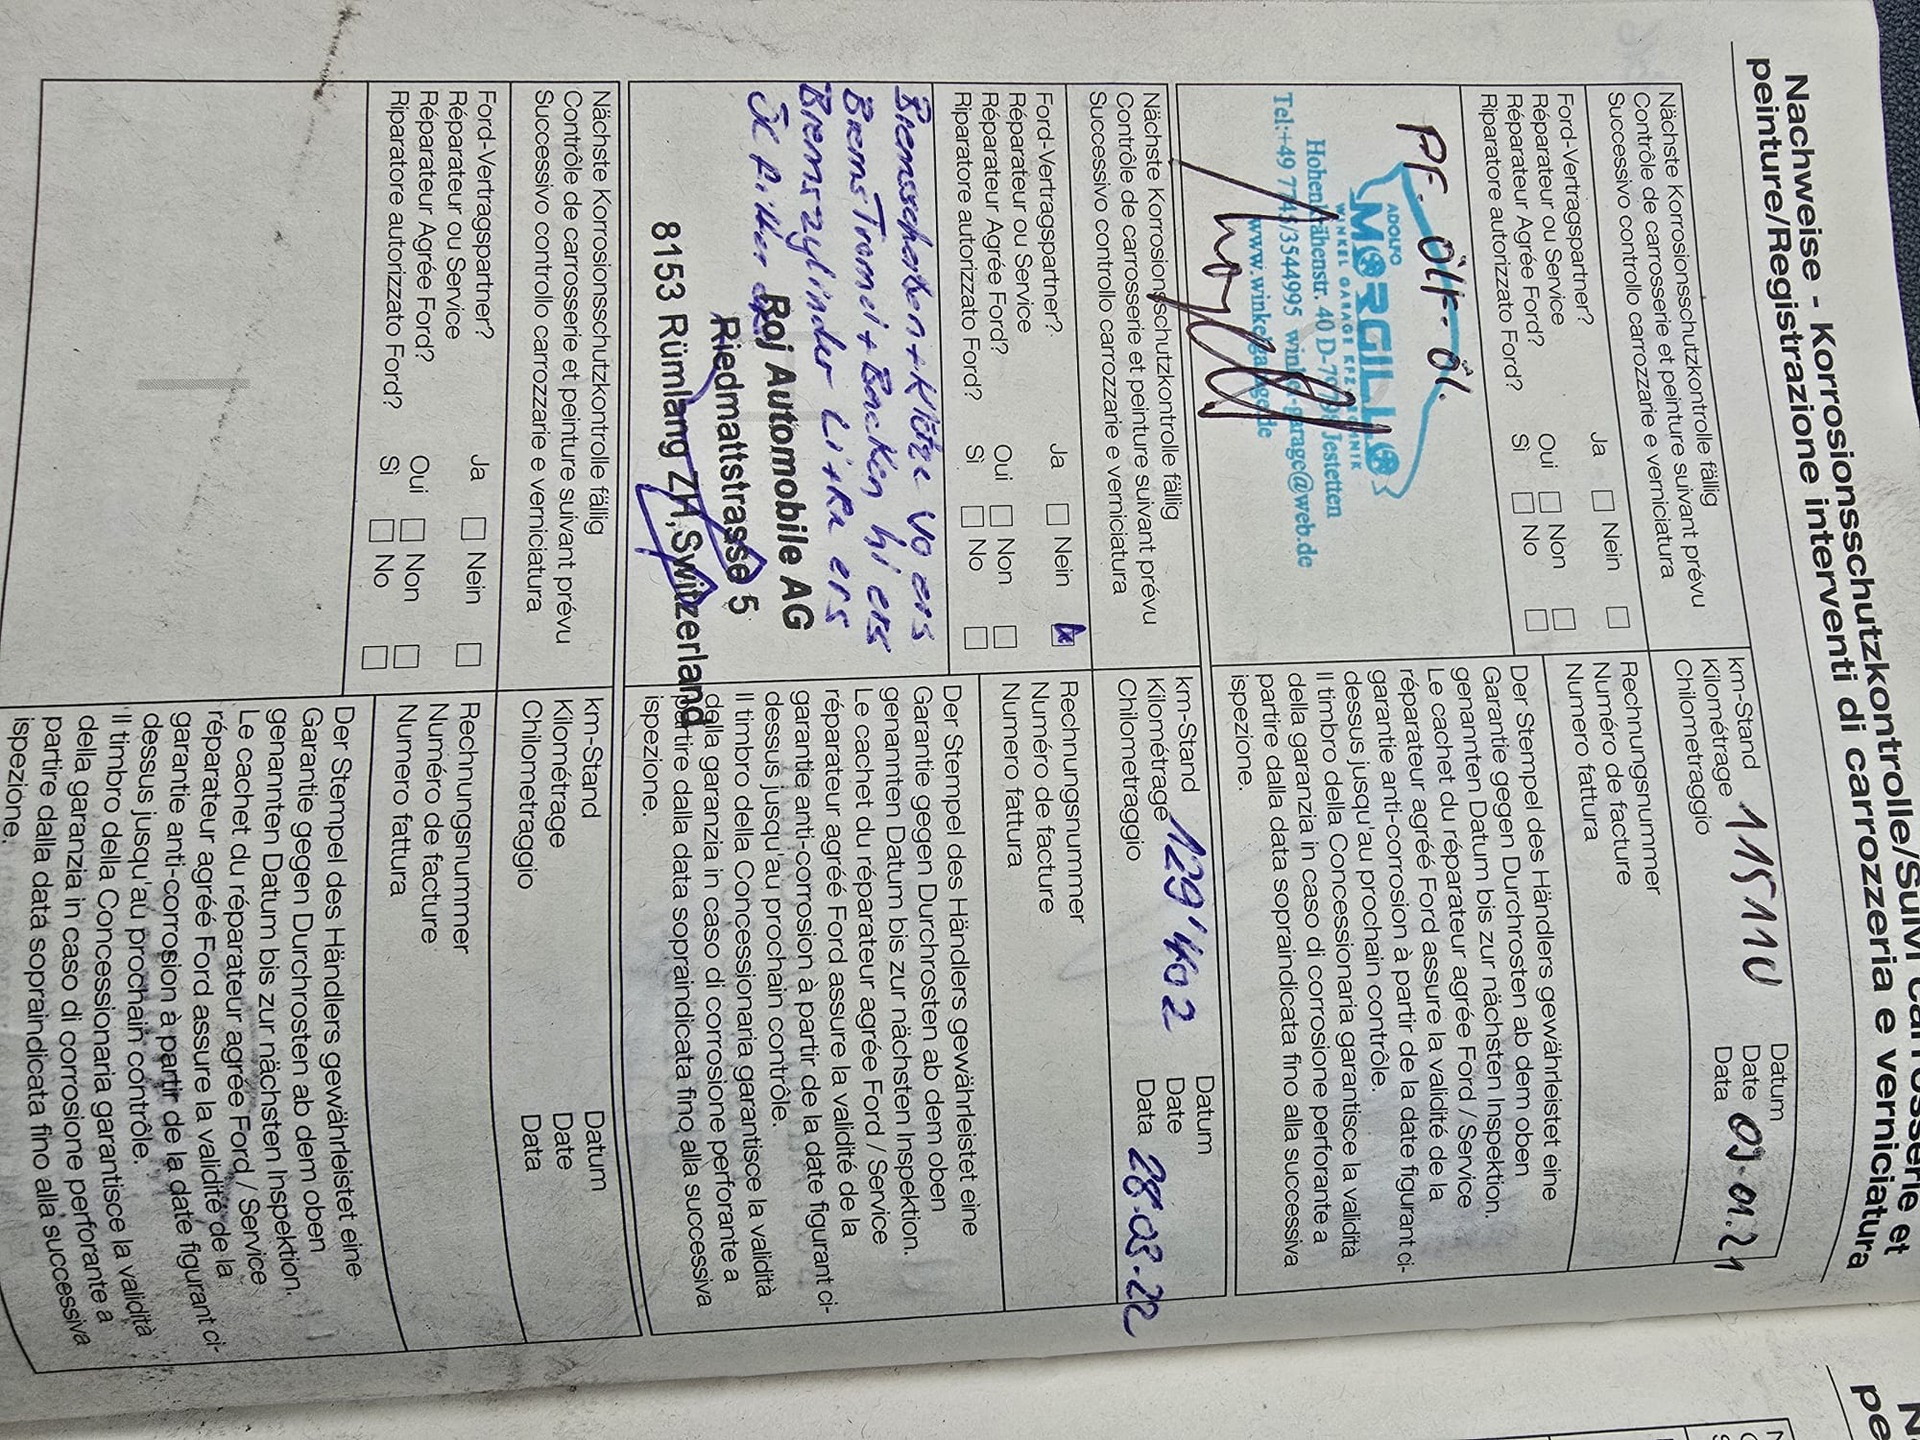 Nachweise - Korrosionsschutzkontrolle/Suivi carrosserie et
peinture/Registrazione interventi di carrozzeria e verniciatura
Nächste Korrosionsschutzkontrolle fällig
Contrôle de carrosserie et peinture suivant prévu
Successivo controllo carrozzarie e verniciatura
km-Stand
Kilométrage 115110
Chilometraggio
Datum
Date 09.01.21
Data
Ford-Vertragspartner? Ja Nein
Réparateur ou Service
Réparateur Agrée Ford? Oui Non
Riparatore autorizzato Ford? Sì No
Rechnungsnummer
Numéro de facture
Numero fattura
PF- ÖlF- Öl.
ADOLFO
MORGILLO
WINKEL GARAGE KFZ
Hohenkrähenstr. 40 D- Jestetten
Tel:+49 7745/3544995 winkel-garage@web.de
www.winkelgarage.de
Der Stempel des Händlers gewährleistet eine
Garantie gegen Durchrosten ab dem oben
genannten Datum bis zur nächsten Inspektion.
Le cachet du réparateur agrée Ford / Service
réparateur agréé Ford assure la validité de la
garantie anti-corrosion à partir de la date figurant ci-
dessus jusqu'au prochain contrôle.
Il timbro della Concessionaria garantisce la validità
della garanzia in caso di corrosione perforante a
partire dalla data sopraindicata fino alla successiva
ispezione.
Nächste Korrosionsschutzkontrolle fällig
Contrôle de carrosserie et peinture suivant prévu
Successivo controllo carrozzarie e verniciatura
km-Stand
Kilométrage 129'402
Chilometraggio
Datum
Date
Data 28.03.22
Ford-Vertragspartner? Ja Nein x
Réparateur ou Service
Réparateur Agrée Ford? Oui Non
Riparatore autorizzato Ford? Sì No
Rechnungsnummer
Numéro de facture
Numero fattura
Bremsscheiben + Klötze vo ers
Brems Tromel + Backen hi ers
Bremszylinder Linke ers
Roj Automobile AG
Riedmattstrasse 5
8153 Rümlang ZH, Switzerland
Der Stempel des Händlers gewährleistet eine
Garantie gegen Durchrosten ab dem oben
genannten Datum bis zur nächsten Inspektion.
Le cachet du réparateur agrée Ford / Service
réparateur agréé Ford assure la validité de la
garantie anti-corrosion à partir de la date figurant ci-
dessus jusqu'au prochain contrôle.
Il timbro della Concessionaria garantisce la validità
della garanzia in caso di corrosione perforante a
partire dalla data sopraindicata fino alla successiva
ispezione.
Nächste Korrosionsschutzkontrolle fällig
Contrôle de carrosserie et peinture suivant prévu
Successivo controllo carrozzarie e verniciatura
km-Stand
Kilométrage
Chilometraggio
Datum
Date
Data
Ford-Vertragspartner? Ja Nein
Réparateur ou Service
Réparateur Agrée Ford? Oui Non
Riparatore autorizzato Ford? Sì No
Rechnungsnummer
Numéro de facture
Numero fattura
Der Stempel des Händlers gewährleistet eine
Garantie gegen Durchrosten ab dem oben
genannten Datum bis zur nächsten Inspektion.
Le cachet du réparateur agrée Ford / Service
réparateur agréé Ford assure la validité de la
garantie anti-corrosion à partir de la date figurant ci-
dessus jusqu'au prochain contrôle.
Il timbro della Concessionaria garantisce la validità
della garanzia in caso di corrosione perforante a
partire dalla data sopraindicata fino alla successiva
ispezione.